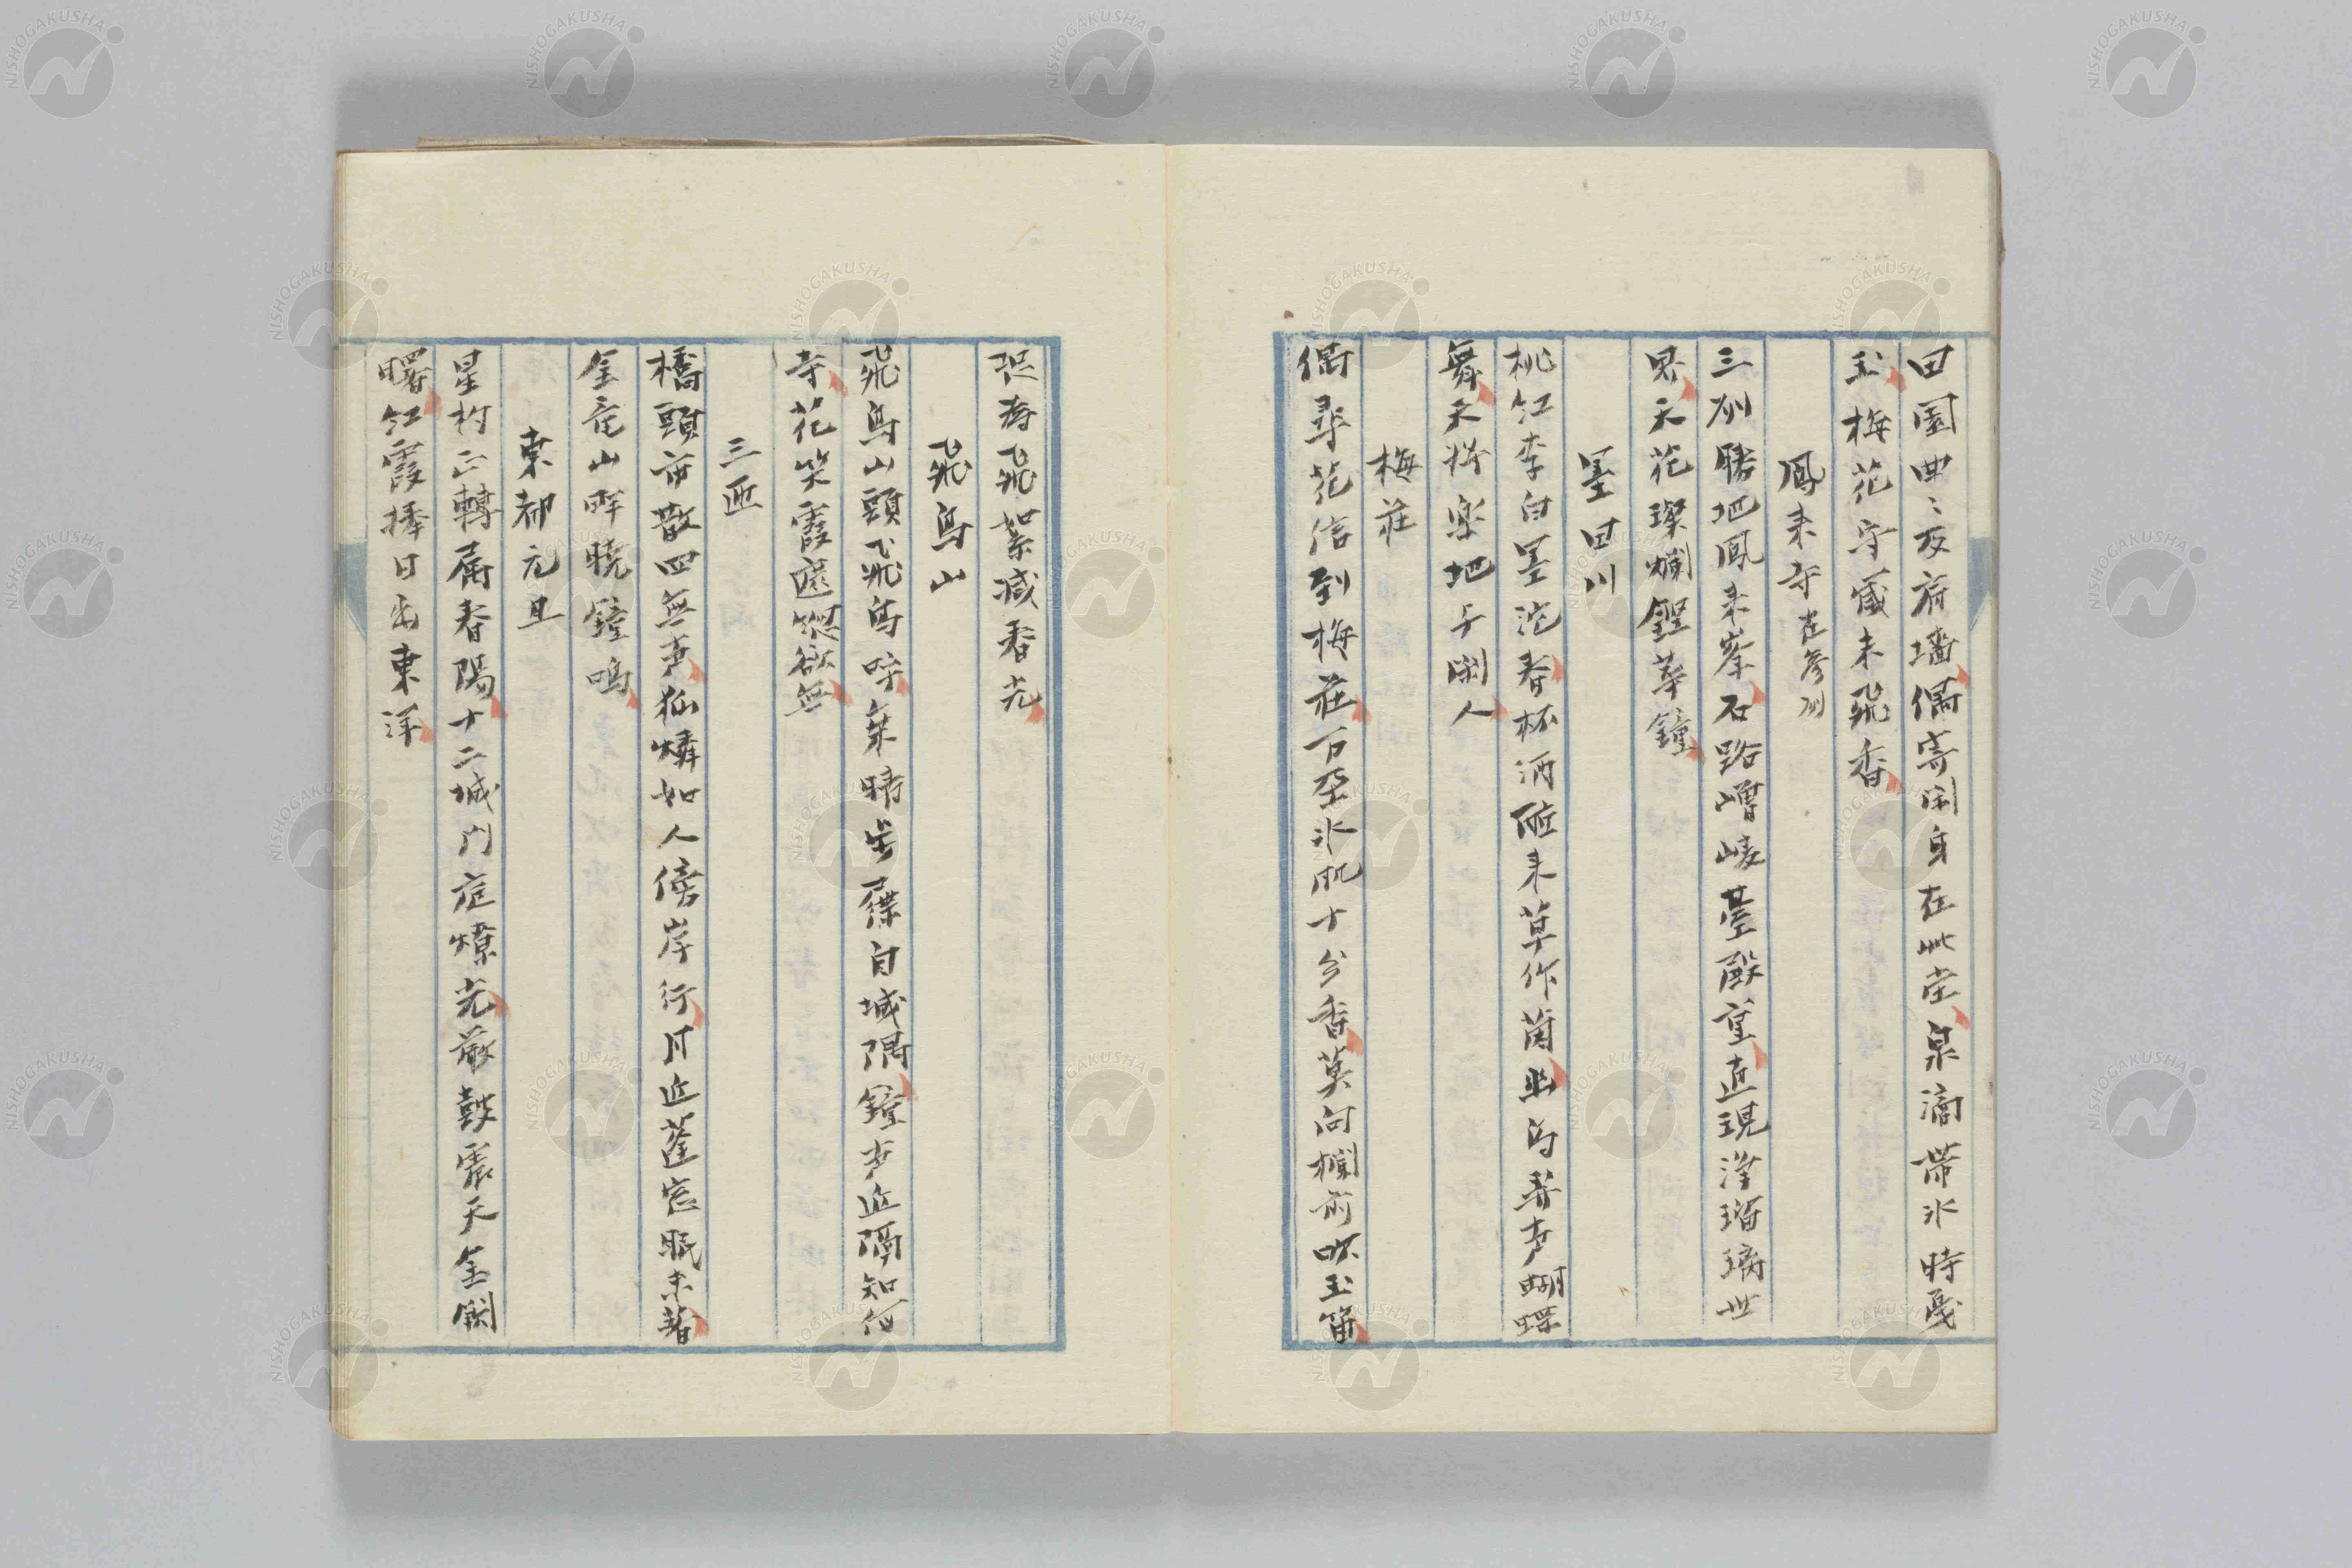 田園曲々夜府墻偶寄閑身在此堂泉滴帯氷時戞
玉梅花守歳未飛香
鳳来寺在参州
三州勝地鳳来峯石路嶒崚臺殿重直現浄瑠璃世
界天花璨爛鏗華鐘
墨田川
桃红李白墨沱春杯酒酣来草作茵幽鳥弄声蝴蝶
舞天将楽地与閑人
梅荘
偶尋花信到梅荘百朶氷肌十分香莫向欄前吹玉笛
恐為飛絮减春光
飛鳥山
飛鳥山頭飛鳥呼乗晴歩屧自城隅鐘声近隔知何
寺花笑霞遮慾欲無
三匝
橋頭市散四無声狐燐如人傍岸行月近蓬窓眠未著
金竜山畔暁鐘鳴
東都元旦
星杓正轉属春陽十二城門庭燎光厳鼓震天金闕
曙红霞捧日出東洋
NISHOGAKUSHA